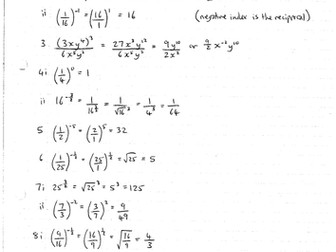 ii (1/16)⁻¹ = (16/1)¹ = 16 (negative index is the reciprocal)
3 (3xy⁴)³/6x⁵y² = 27x³y¹²/6x⁵y² = 9y¹⁰/2x² or 9/2 x⁻²y¹⁰
4i (1/4)⁰ = 1
ii 16^(-3/2) = 1/16^(3/2) = 1/√16³ = 1/4³ = 1/64
5 (1/2)⁻⁵ = (2/1)⁵ = 32
6 (1/25)^(-1/2) = (25/1)^(1/2) = √25 = 5
7i 25^(3/2) = √25³ = 5³ = 125
ii (7/3)⁻² = (3/7)² = 9/49
8i (9/16)^(-1/2) = (16/9)^(1/2) = √(16/9) = 4/3